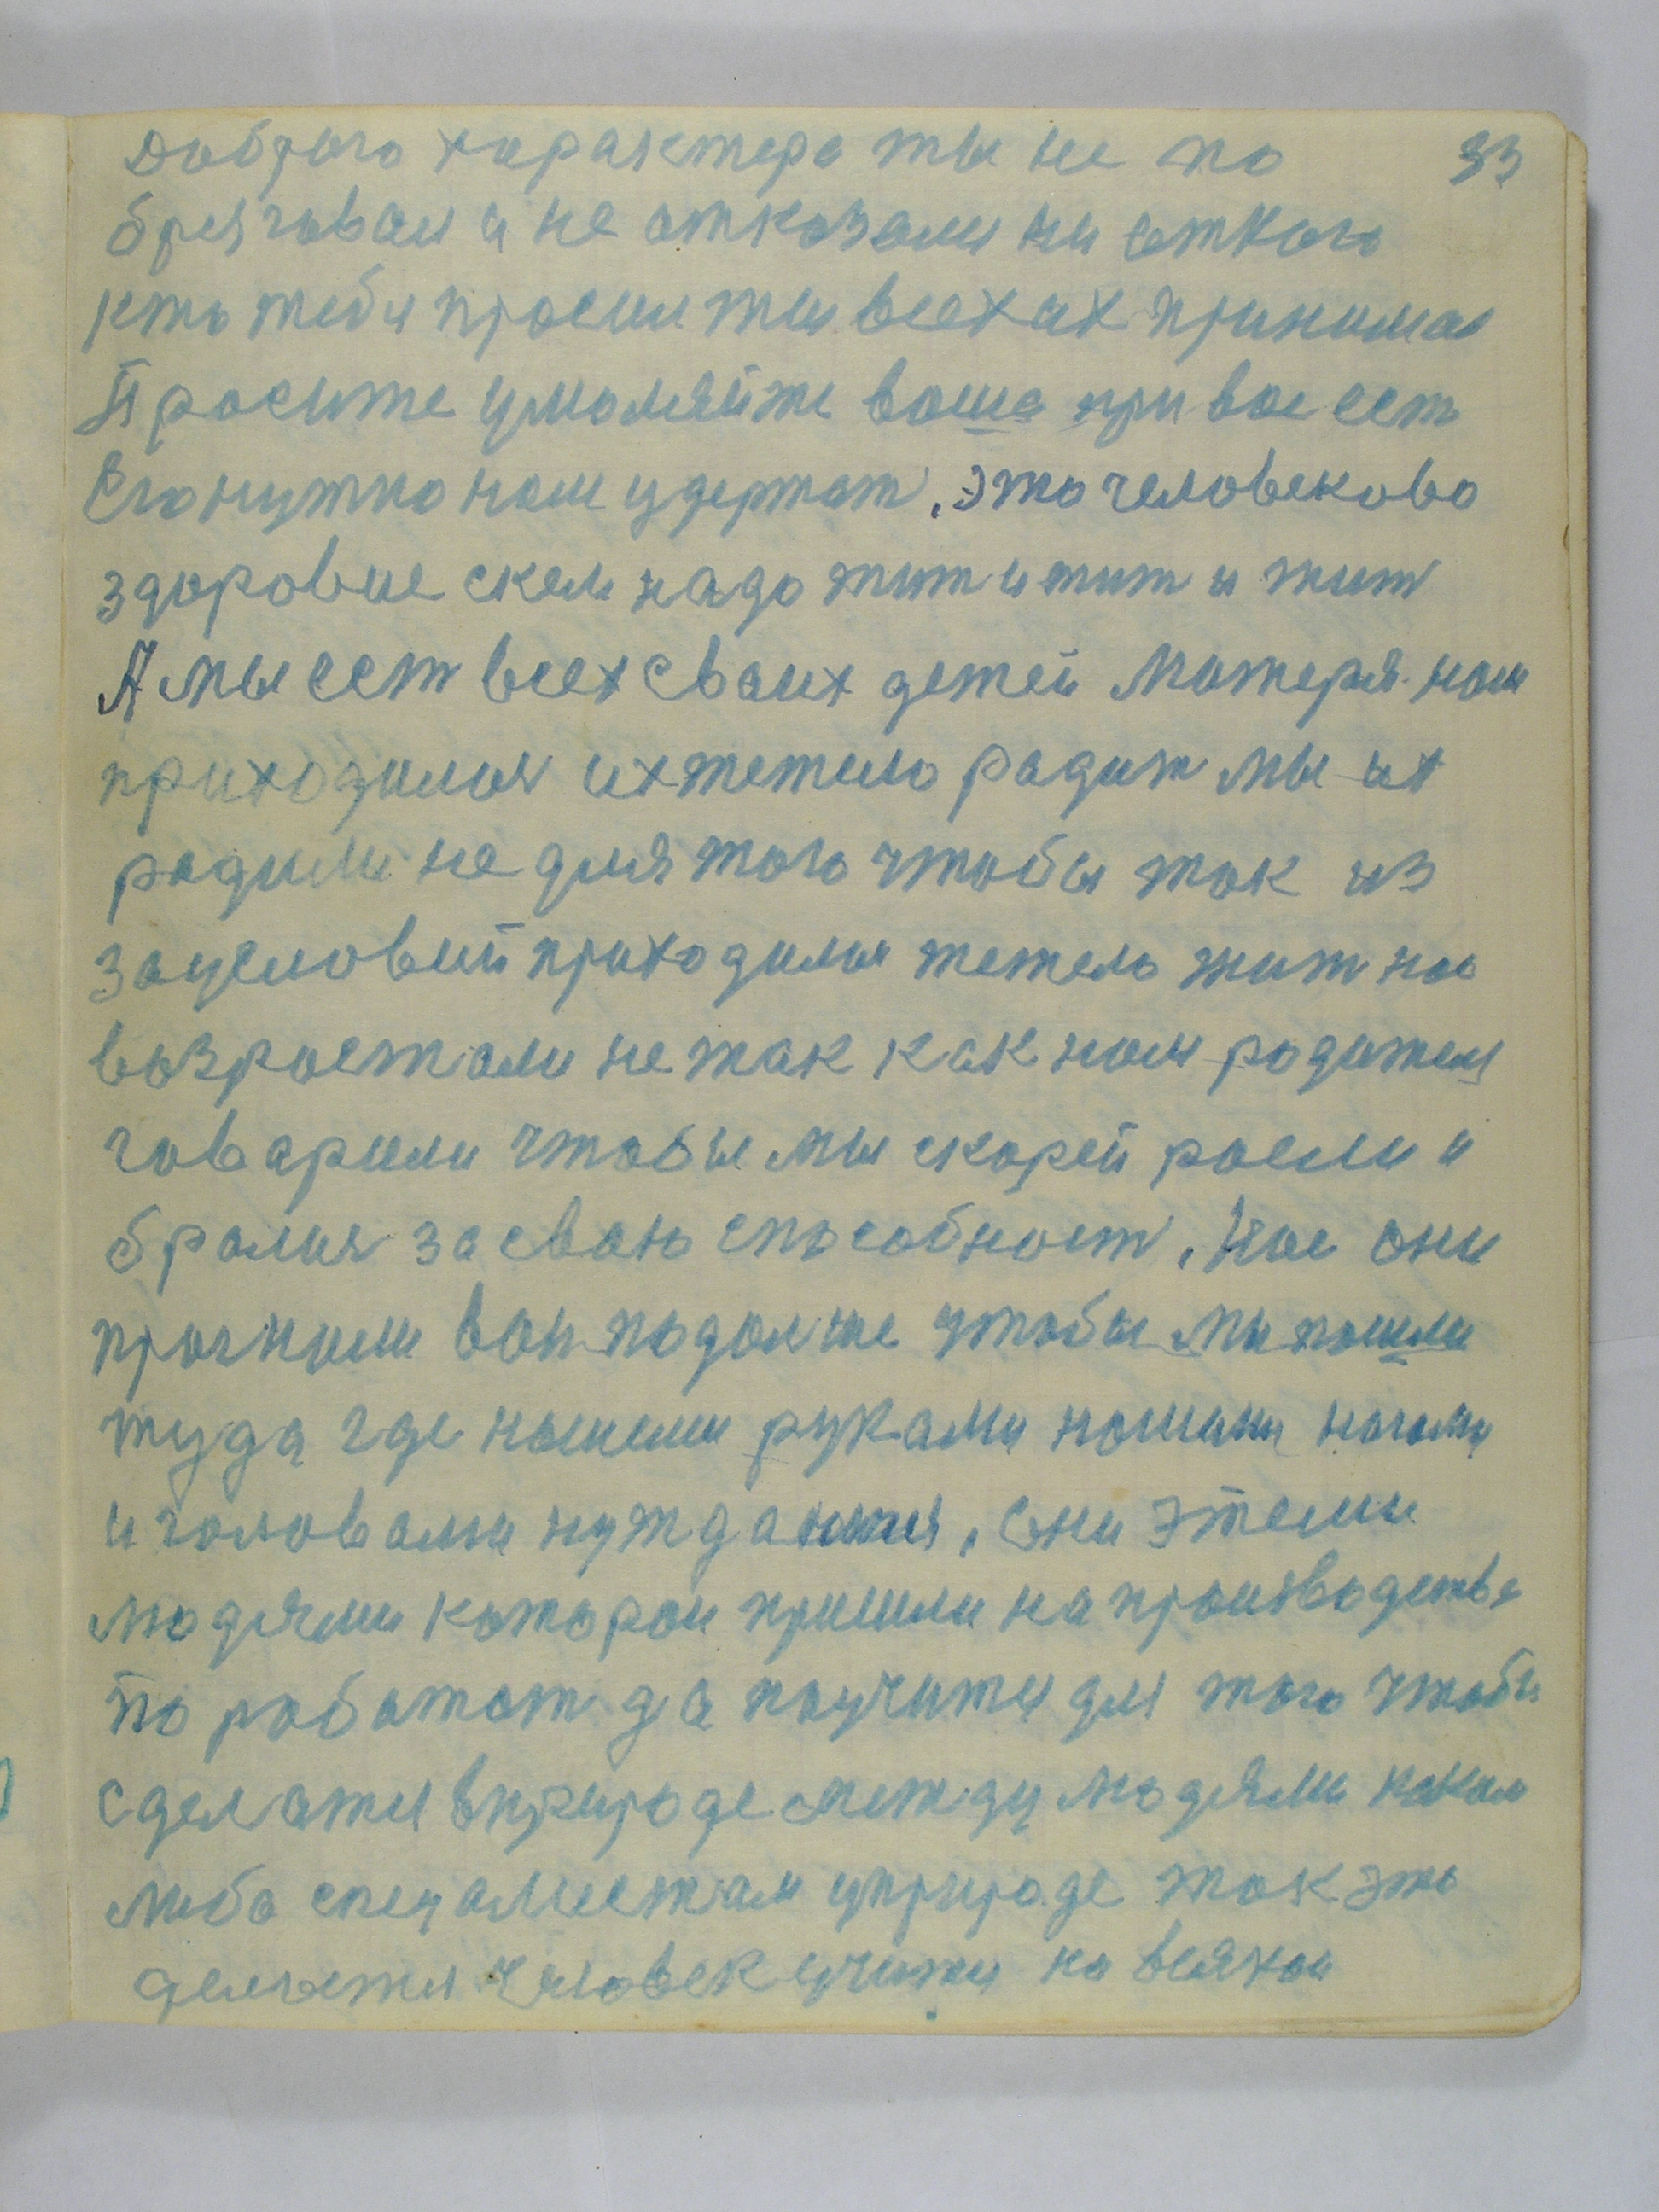 33
Доброго характера ты не по
брязговал и не отказали ни откого
кто тебя просил ты всех их принимал
Просите умоляйте ваше при вас ест
Его нужно нам удержат, это человеково
здоровие скем надо жит и жит и жит
А мы ест всех своих детей матеря нам
приходилоя их тежело радит мы их
радили не для того чтобы так из
за условий приходилоя тежело жит нас
возростали не так как нам родители
говарили чтобы мы скорей росли и
бралися за сваю способност, Нас они
прогнали вон подальше чтобы мы пошли
туда где нашими руками нашими ногами
и головами нуждаются, Они этеми
людями которои пришли на производство
По работат да поучится для того чтобы
сделатся в природе между людями каким
либо специалистам у природе так это
делается Человек учится на всякои